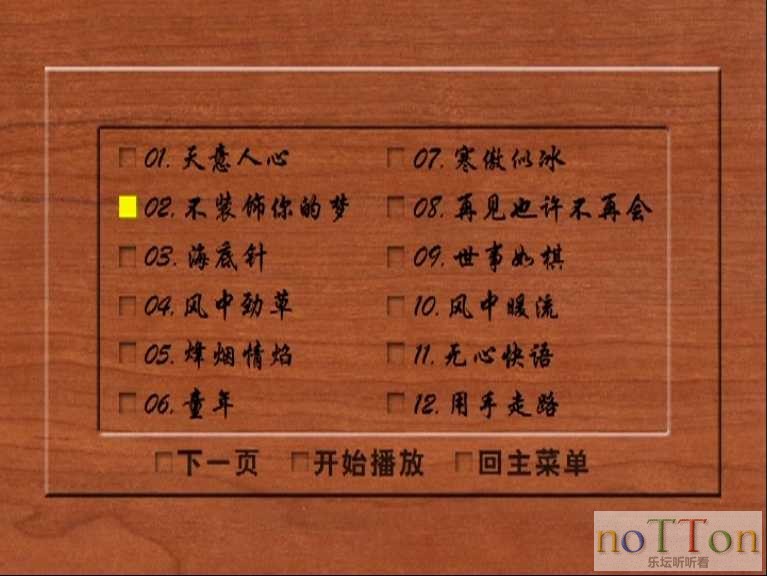 01. 天意人心
02. 不装饰你的梦
03. 海底针
04. 风中劲草
05. 烽烟情焰
06. 童年
07. 寒傲似冰
08. 再见也许不再会
09. 世事如棋
10. 风中暖流
11. 无心快语
12. 用手走路
下一页 开始播放 回主菜单
noTTon
乐坛听听看